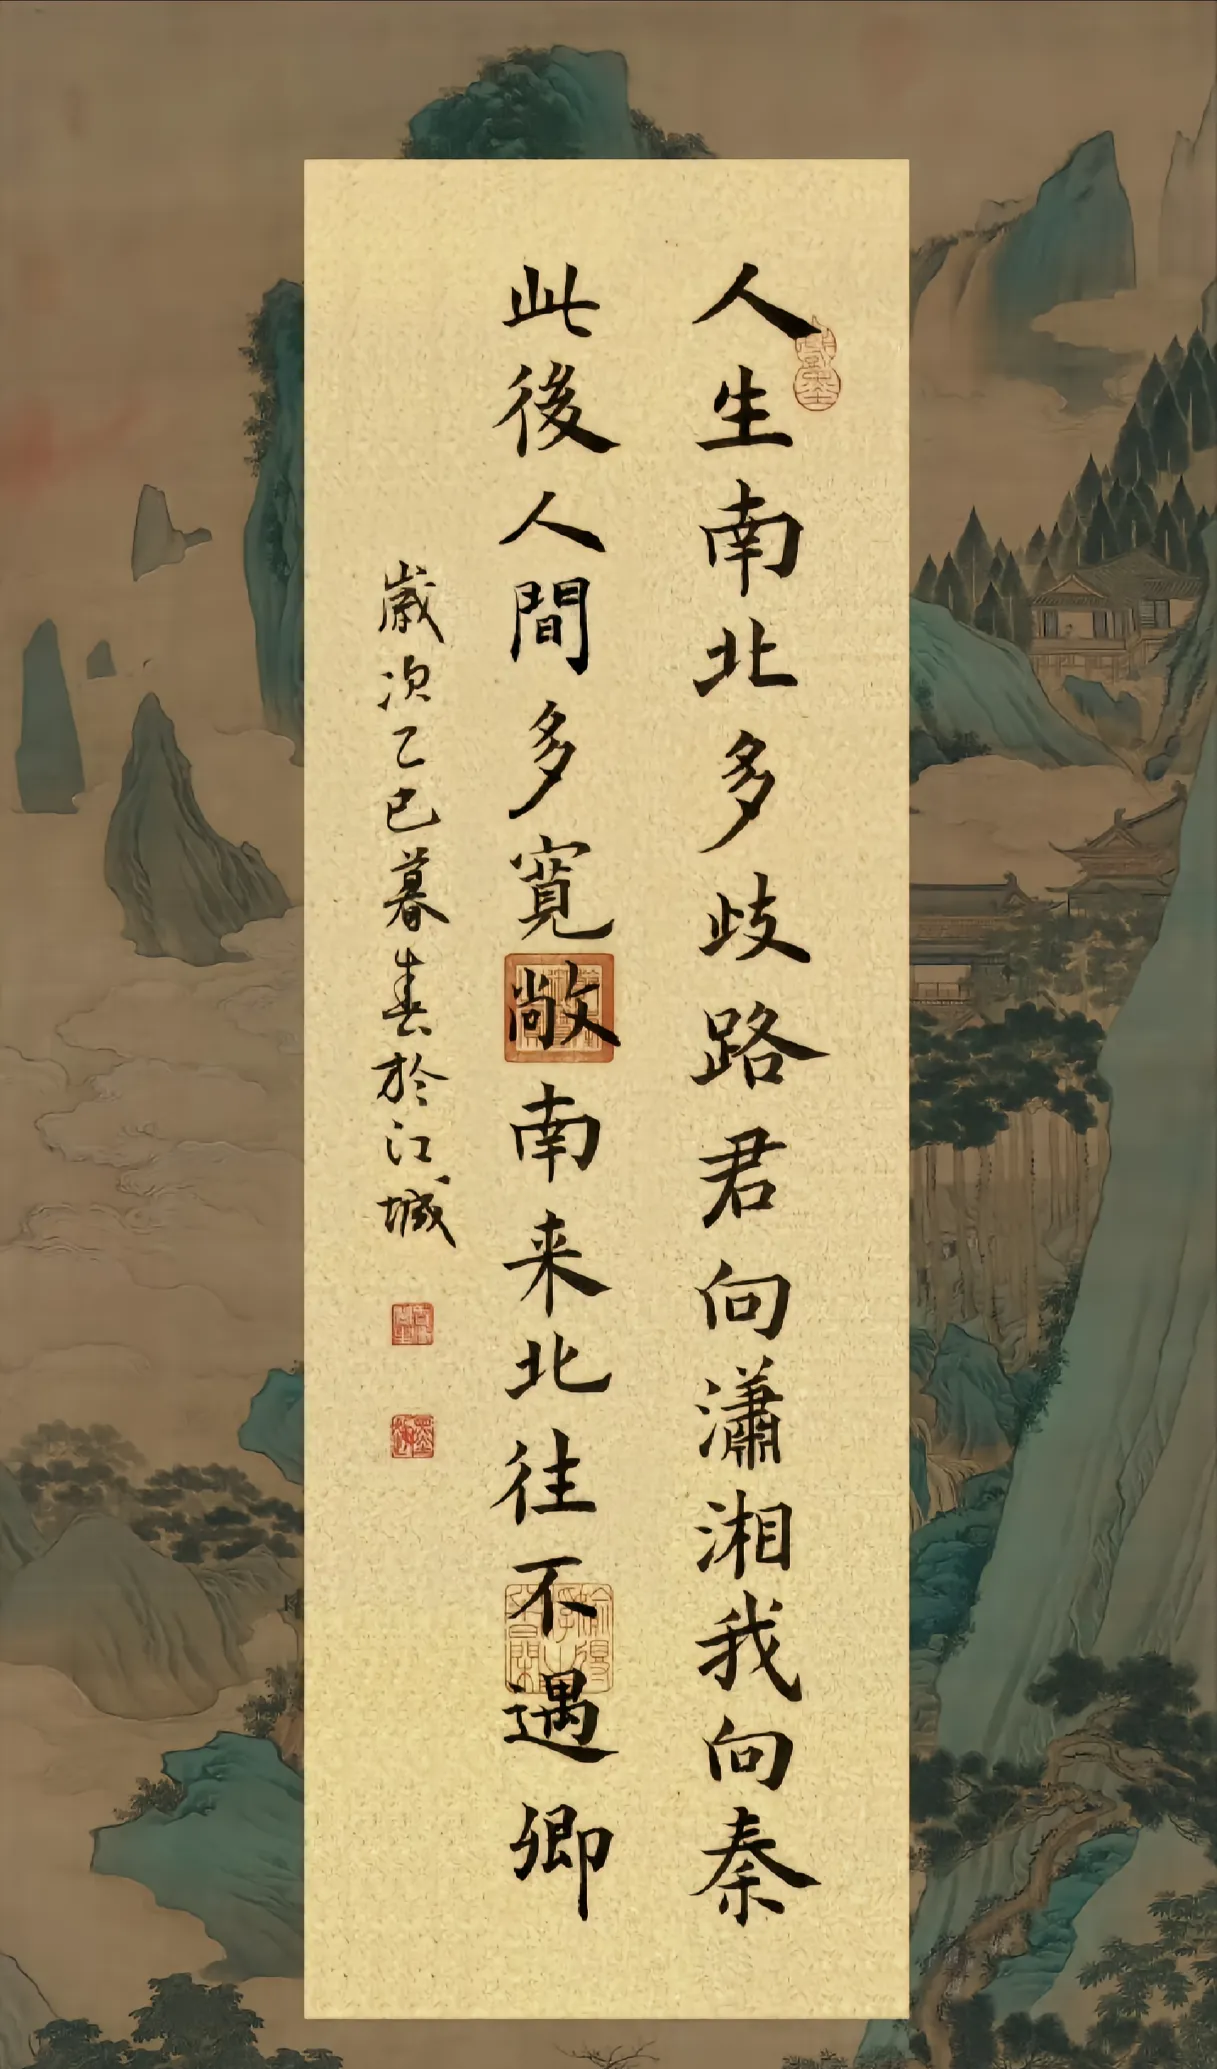 人生南北多歧路君向瀟湘我向秦
此後人間多寬敞南来北往不遇卿
歲次乙巳暮春於江城